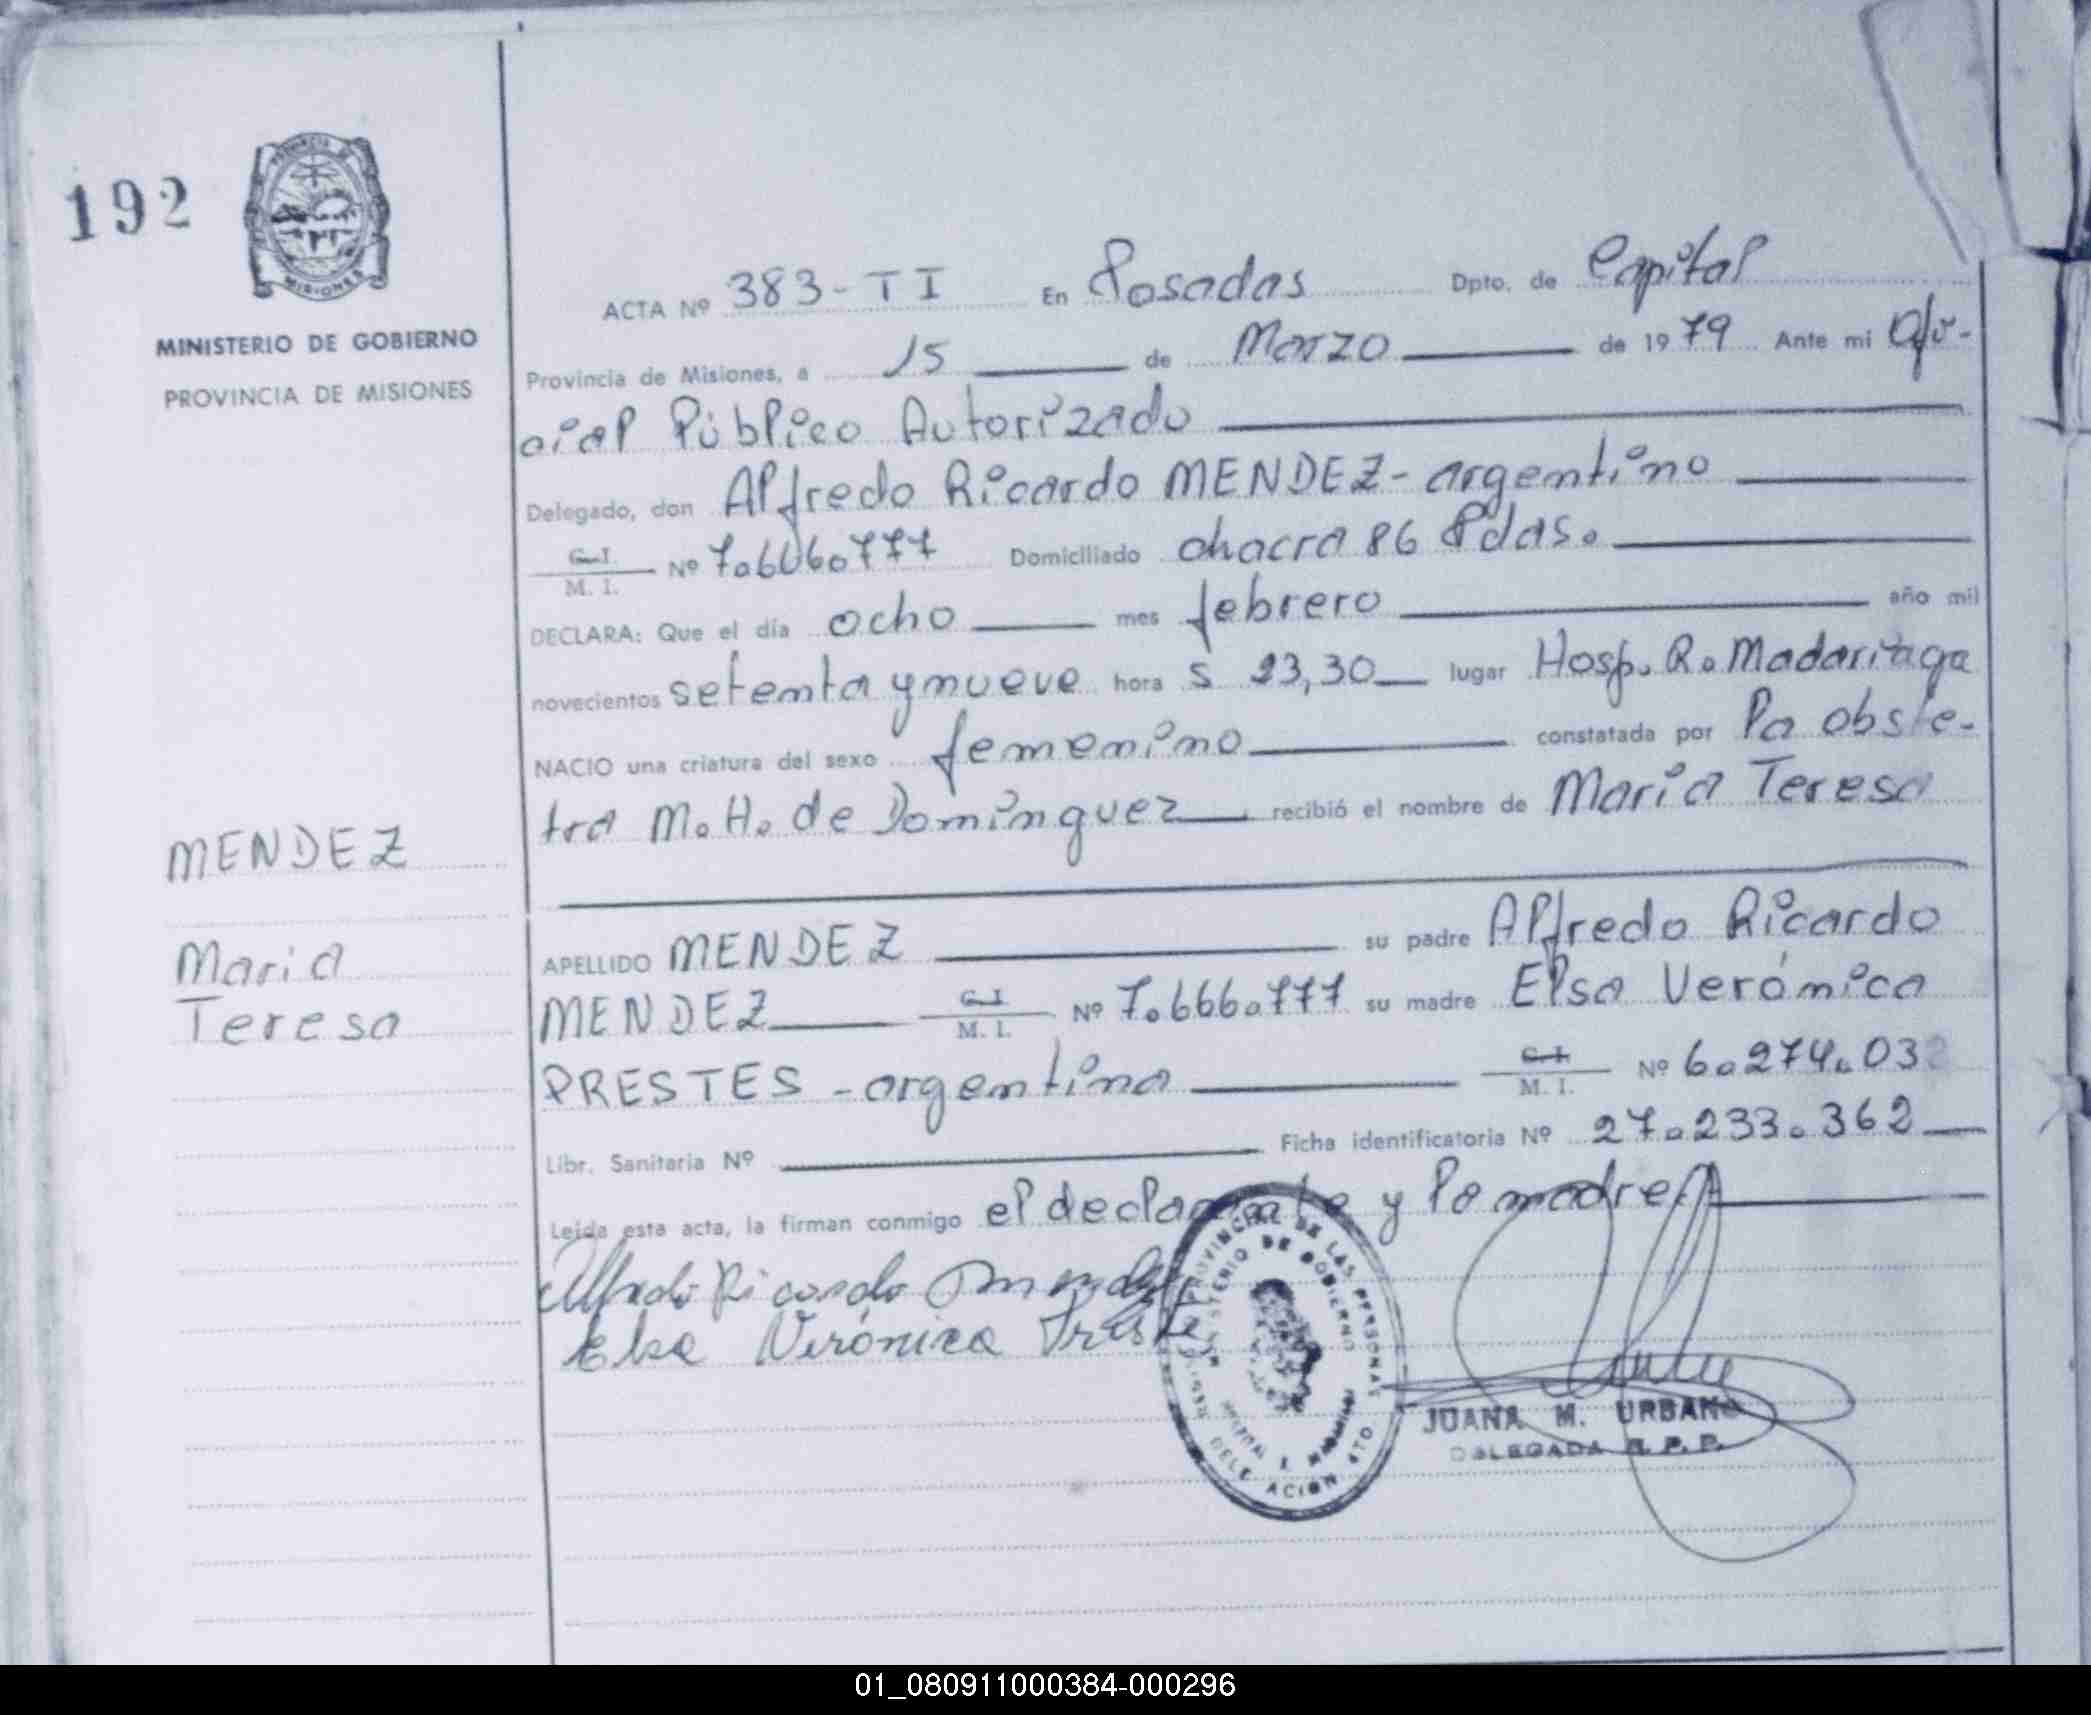 192
PROVINCIA DE
MISIONES
MINISTERIO DE GOBIERNO
PROVINCIA DE MISIONES
ACTA Nº 383-TI En Posadas Dpto. de Capital
Provincia de Misiones, a 15 de Marzo de 1979 Ante mi Ofi-
cial Público Autorizado
Delegado, don Alfredo Ricardo MENDEZ - argentino
C.I. / M. I. Nº 7.666.777 Domiciliado chacra 86 Pdas.
DECLARA: Que el día ocho mes febrero año mil
novecientos setenta y nueve hora s 23,30 lugar Hosp. R. Madariaga
NACIO una criatura del sexo femenino constatada por la obste-
tra M. H. de Dominguez recibió el nombre de Maria Teresa
MENDEZ
Maria
Teresa
APELLIDO MENDEZ su padre Alfredo Ricardo
MENDEZ C.I. / M. I. Nº 7.666.777 su madre Elsa Verónica
PRESTES - argentina C.I. / M. I. Nº 6.274.03
Libr. Sanitaria Nº Ficha identificatoria Nº 27.233.362
Leída esta acta, la firman conmigo el declarante y la madre
Alfredo Ricardo Mendez
Elsa Verónica Preste
PROVINCIAL DE LAS PERSONAS
MINISTERIO DE GOBIERNO
HOSPITAL R. MADARIAGA
DELEGACION 4TO
JUANA M. URBANO
DELEGADA R. P. P.
01_080911000384-000296